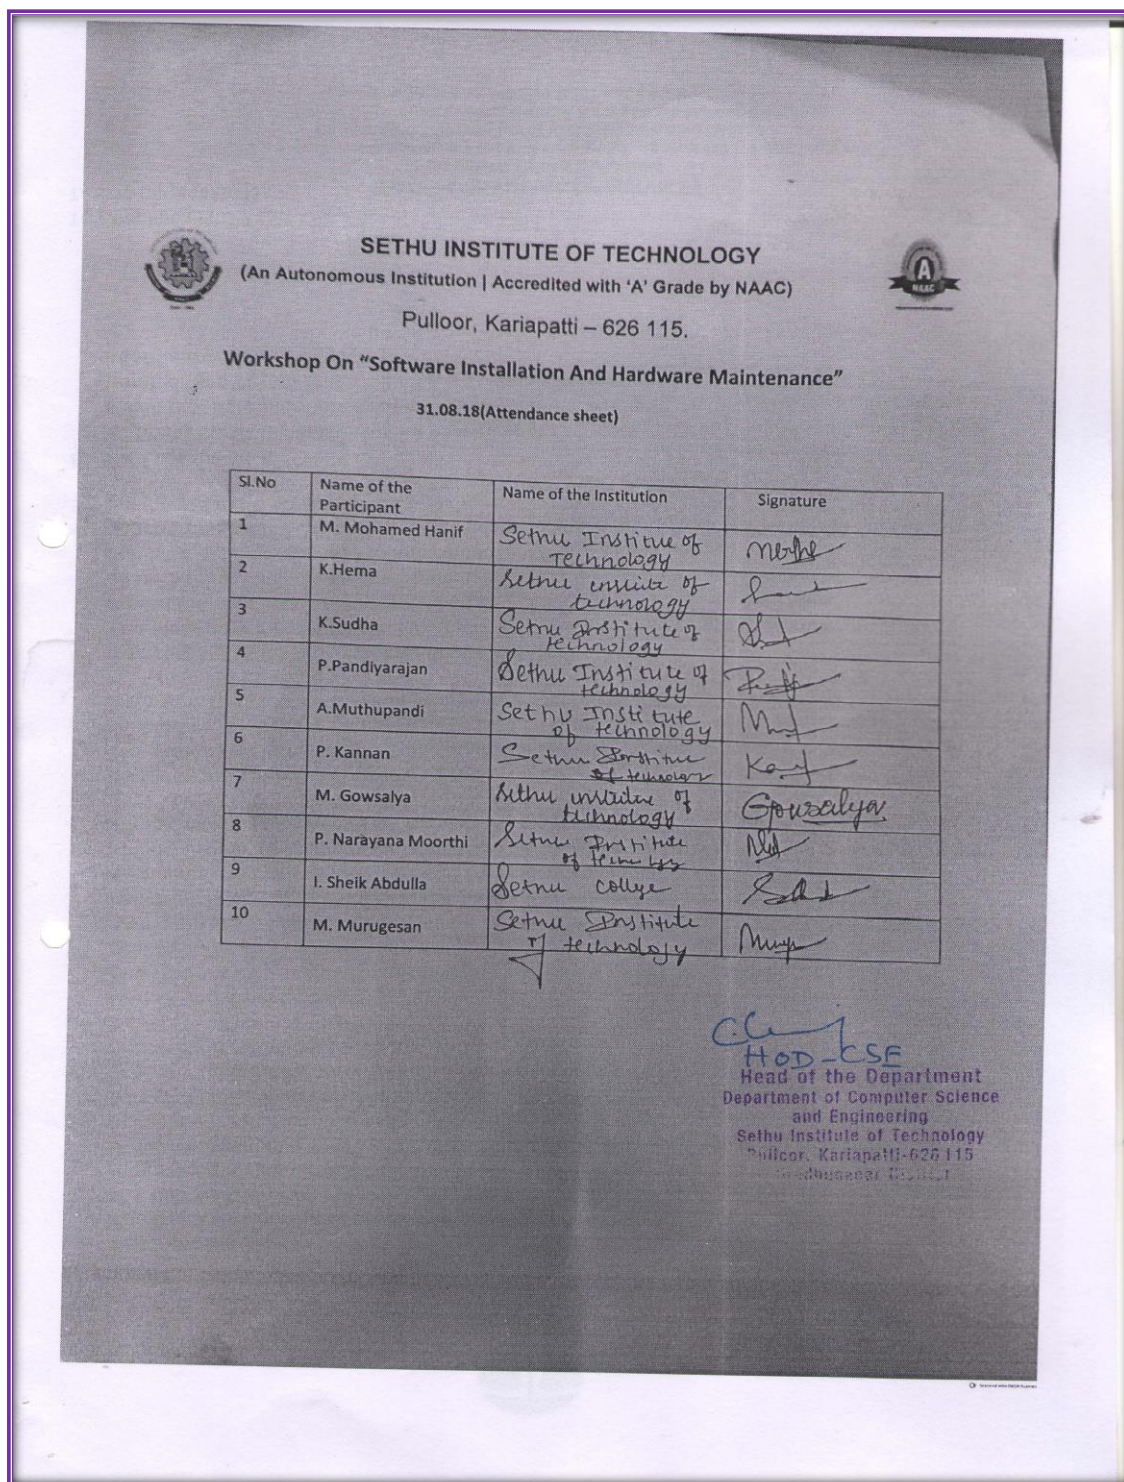 SETHU INSTITUTE OF TECHNOLOGY
(An Autonomous Institution | Accredited with ‘A’ Grade by NAAC)
A
NAAC
Pulloor, Kariapatti – 626 115.
Workshop On “Software Installation And Hardware Maintenance”
31.08.18(Attendance sheet)
Sl.No Name of the Participant Name of the Institution Signature
1 M. Mohamed Hanif Sethu Institue of
Technology
2 K.Hema Sethu of
technology
3 K.Sudha Sethu Institute of
technology
4 P.Pandiyarajan Sethu Institute of
technology
5 A.Muthupandi Sethu Institute
of technology
6 P. Kannan Sethu
of technology
7 M. Gowsalya Sethu institute of
technology Gowsalya
8 P. Narayana Moorthi Sethu Institute
of
9 I. Sheik Abdulla Sethu college
10 M. Murugesan Sethu Institute
of technology
HOD-CSE
Head of the Department
Department of Computer Science
and Engineering
Sethu Institute of Technology
Pulloor, Kariapatti-626 115